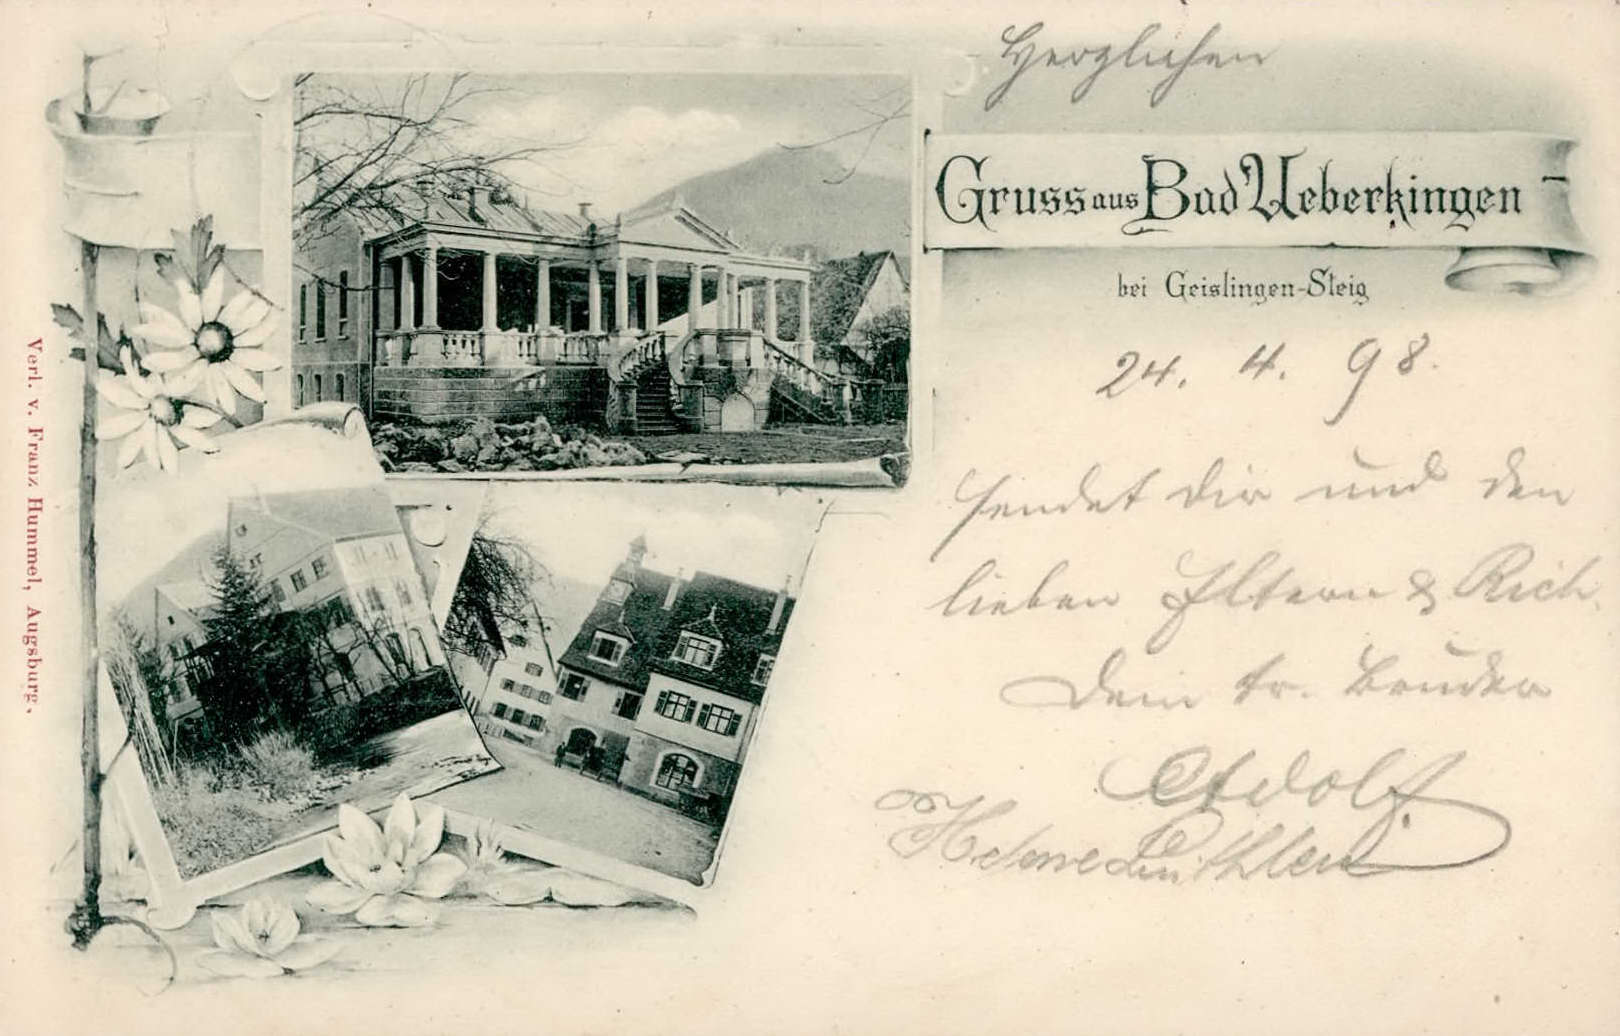 Herzlichen
Gruss aus Bad Ueberkingen
bei Geislingen-Steig
24. 4. 98.
sendet Dir und den
lieben Eltern & Rich.
Dein tr. Bruder
Adolf.
Verl. v. Franz Hummel, Augsburg.